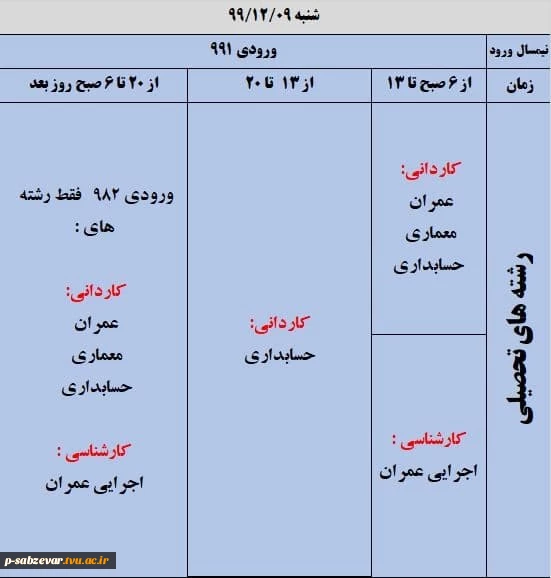 شنبه ۹۹/۱۲/۰۹
نیمسال ورود
ورودی ۹۹۱
زمان
از ۶ صبح تا ۱۳
از ۱۳ تا ۲۰
از ۲۰ تا ۶ صبح روز بعد
رشته های تحصیلی
کاردانی:
عمران
معماری
حسابداری
کارشناسی :
اجرایی عمران
کاردانی:
حسابداری
ورودی ۹۸۲ فقط رشته
های :
کاردانی:
عمران
معماری
حسابداری
کارشناسی :
اجرایی عمران
p-sabzevar.tvu.ac.ir